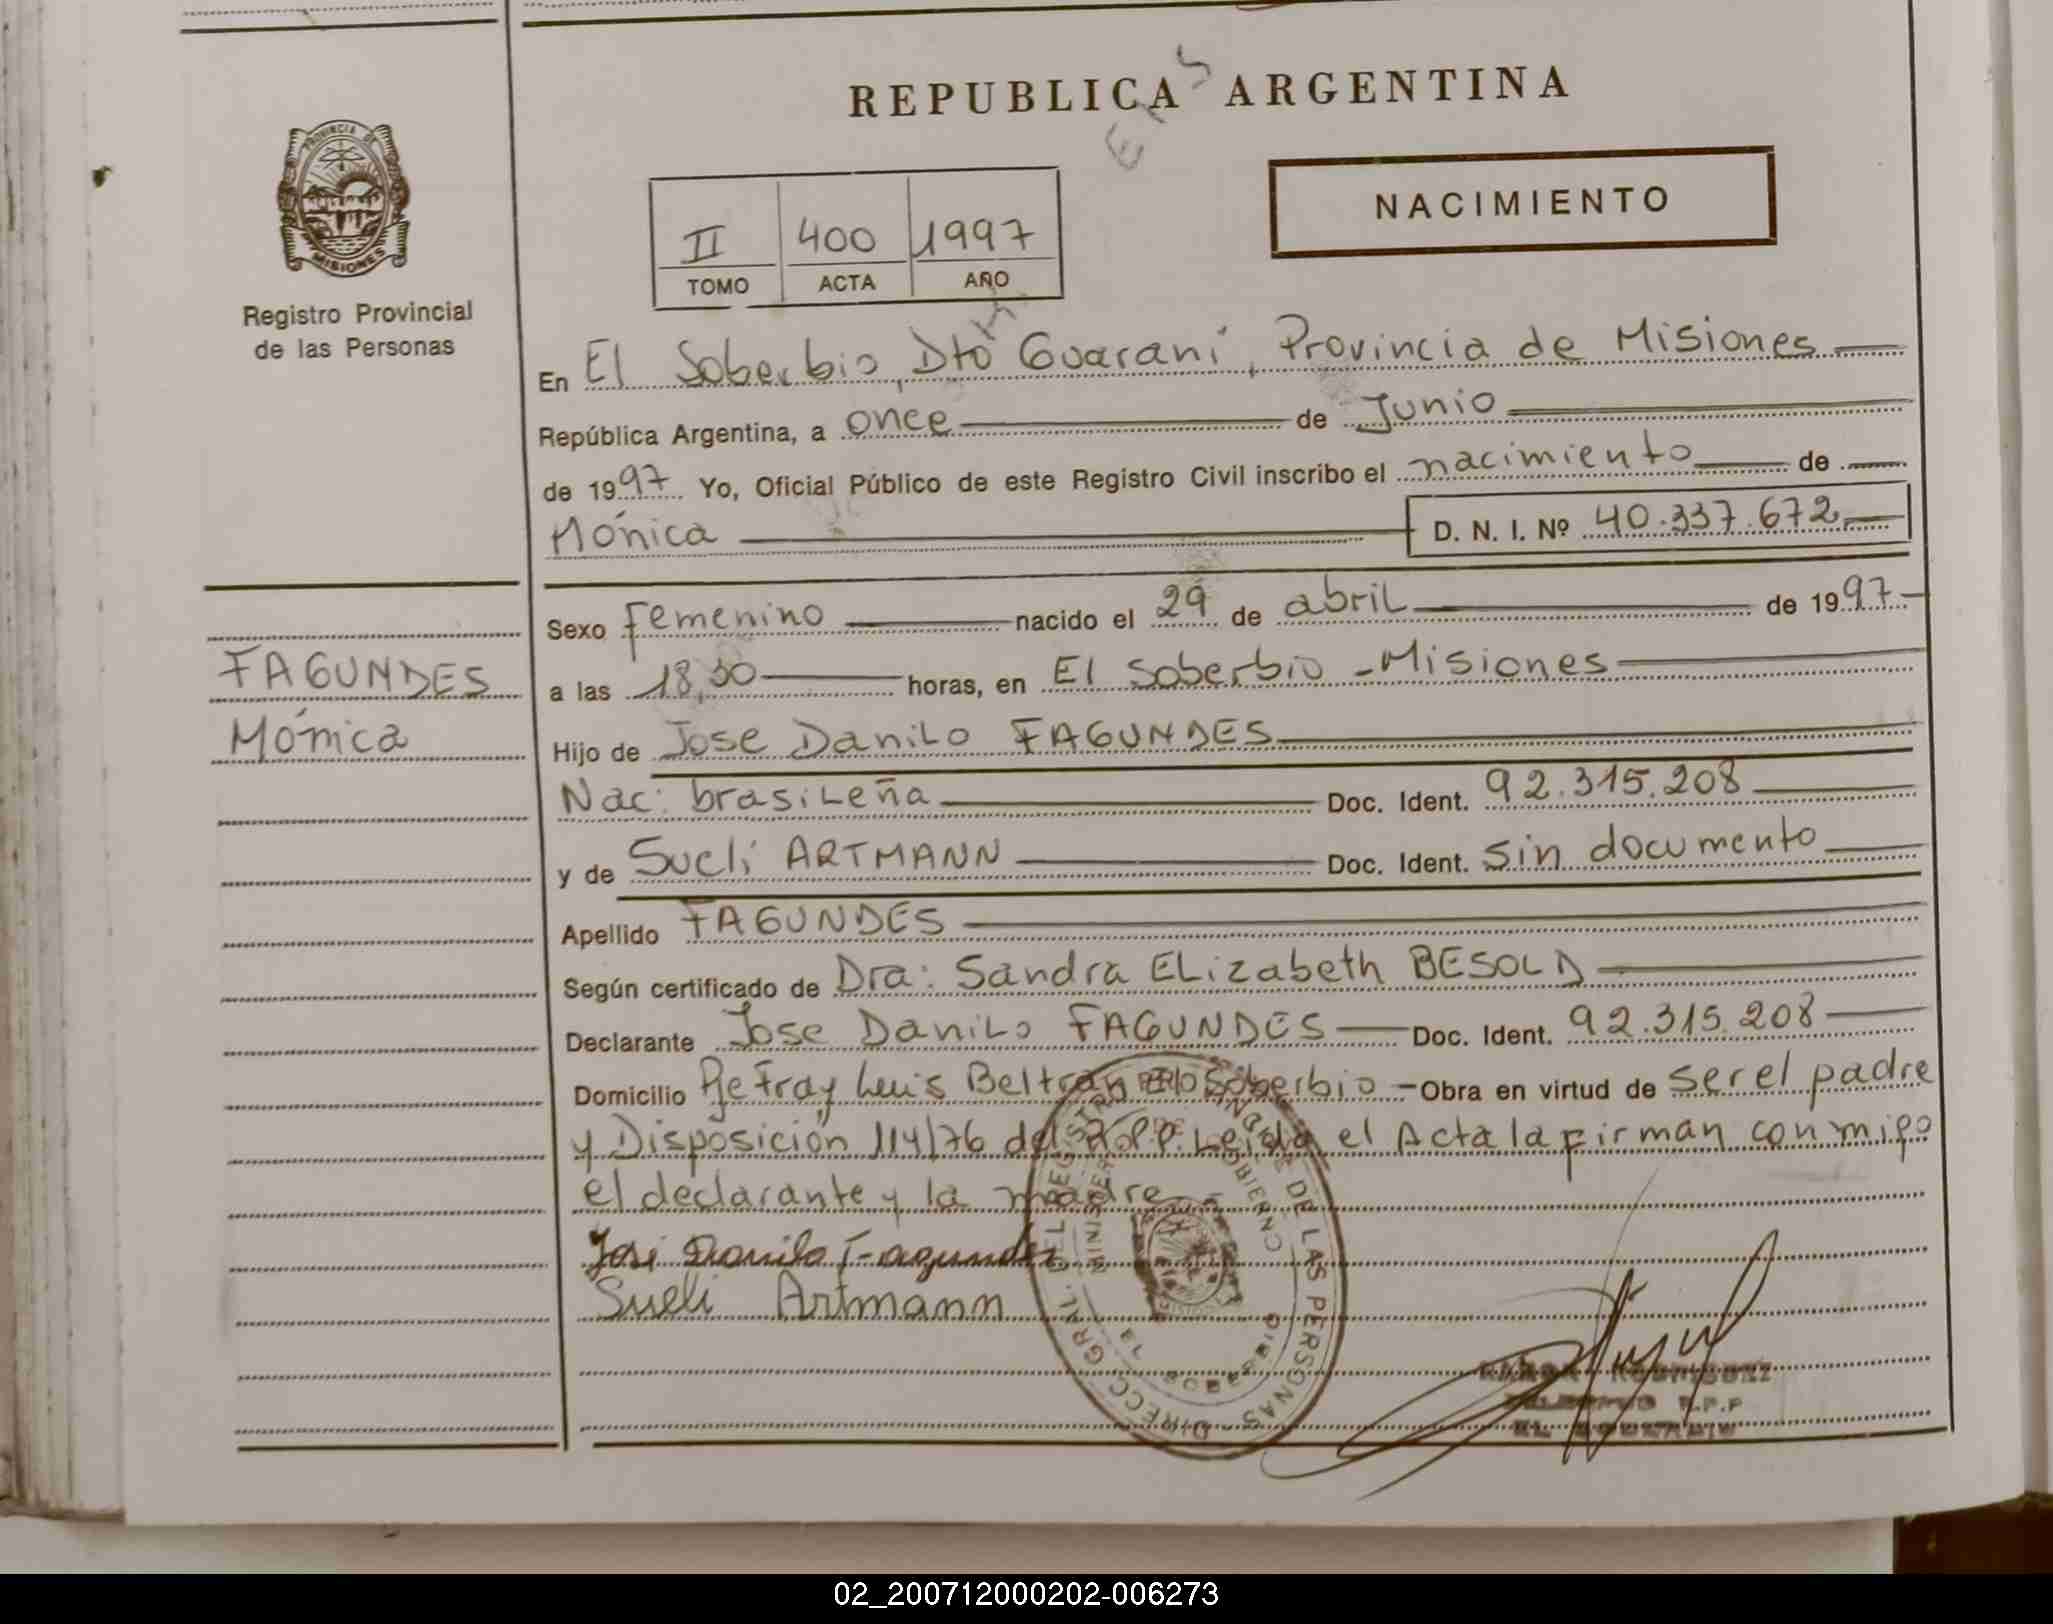 REPUBLICA ARGENTINA
NACIMIENTO
PROVINCIA DE
MISIONES
Registro Provincial
de las Personas
II 400 1997
TOMO ACTA AÑO
En El Soberbio, Dto Guaraní, Provincia de Misiones
República Argentina, a once de Junio
de 1997 Yo, Oficial Público de este Registro Civil inscribo el nacimiento de
Mónica D. N. I. Nº 40.337.672
Sexo Femenino nacido el 29 de abril de 1997
FAGUNDES
a las 18,30 horas, en El Soberbio - Misiones
Mónica
Hijo de Jose Danilo FAGUNDES
Nac: brasileña Doc. Ident. 92.315.208
y de Sueli ARTMANN Doc. Ident. sin documento
Apellido FAGUNDES
Según certificado de Dra: Sandra Elizabeth BESOLD
Declarante Jose Danilo FAGUNDES Doc. Ident. 92.315.208
Domicilio Pje Fray Luis Beltrán El Soberbio - Obra en virtud de ser el padre
y Disposición 114/76 del R.P.P. Leida el Acta la firman conmigo
el declarante y la madre
José Danilo Fagundes
Sueli Artmann
DIRECC. GRAL. DEL REGISTRO DE LAS PERSONAS
RAMON RODRIGUEZ
R.P.P
EL SOBERBIO
02_200712000202-006273